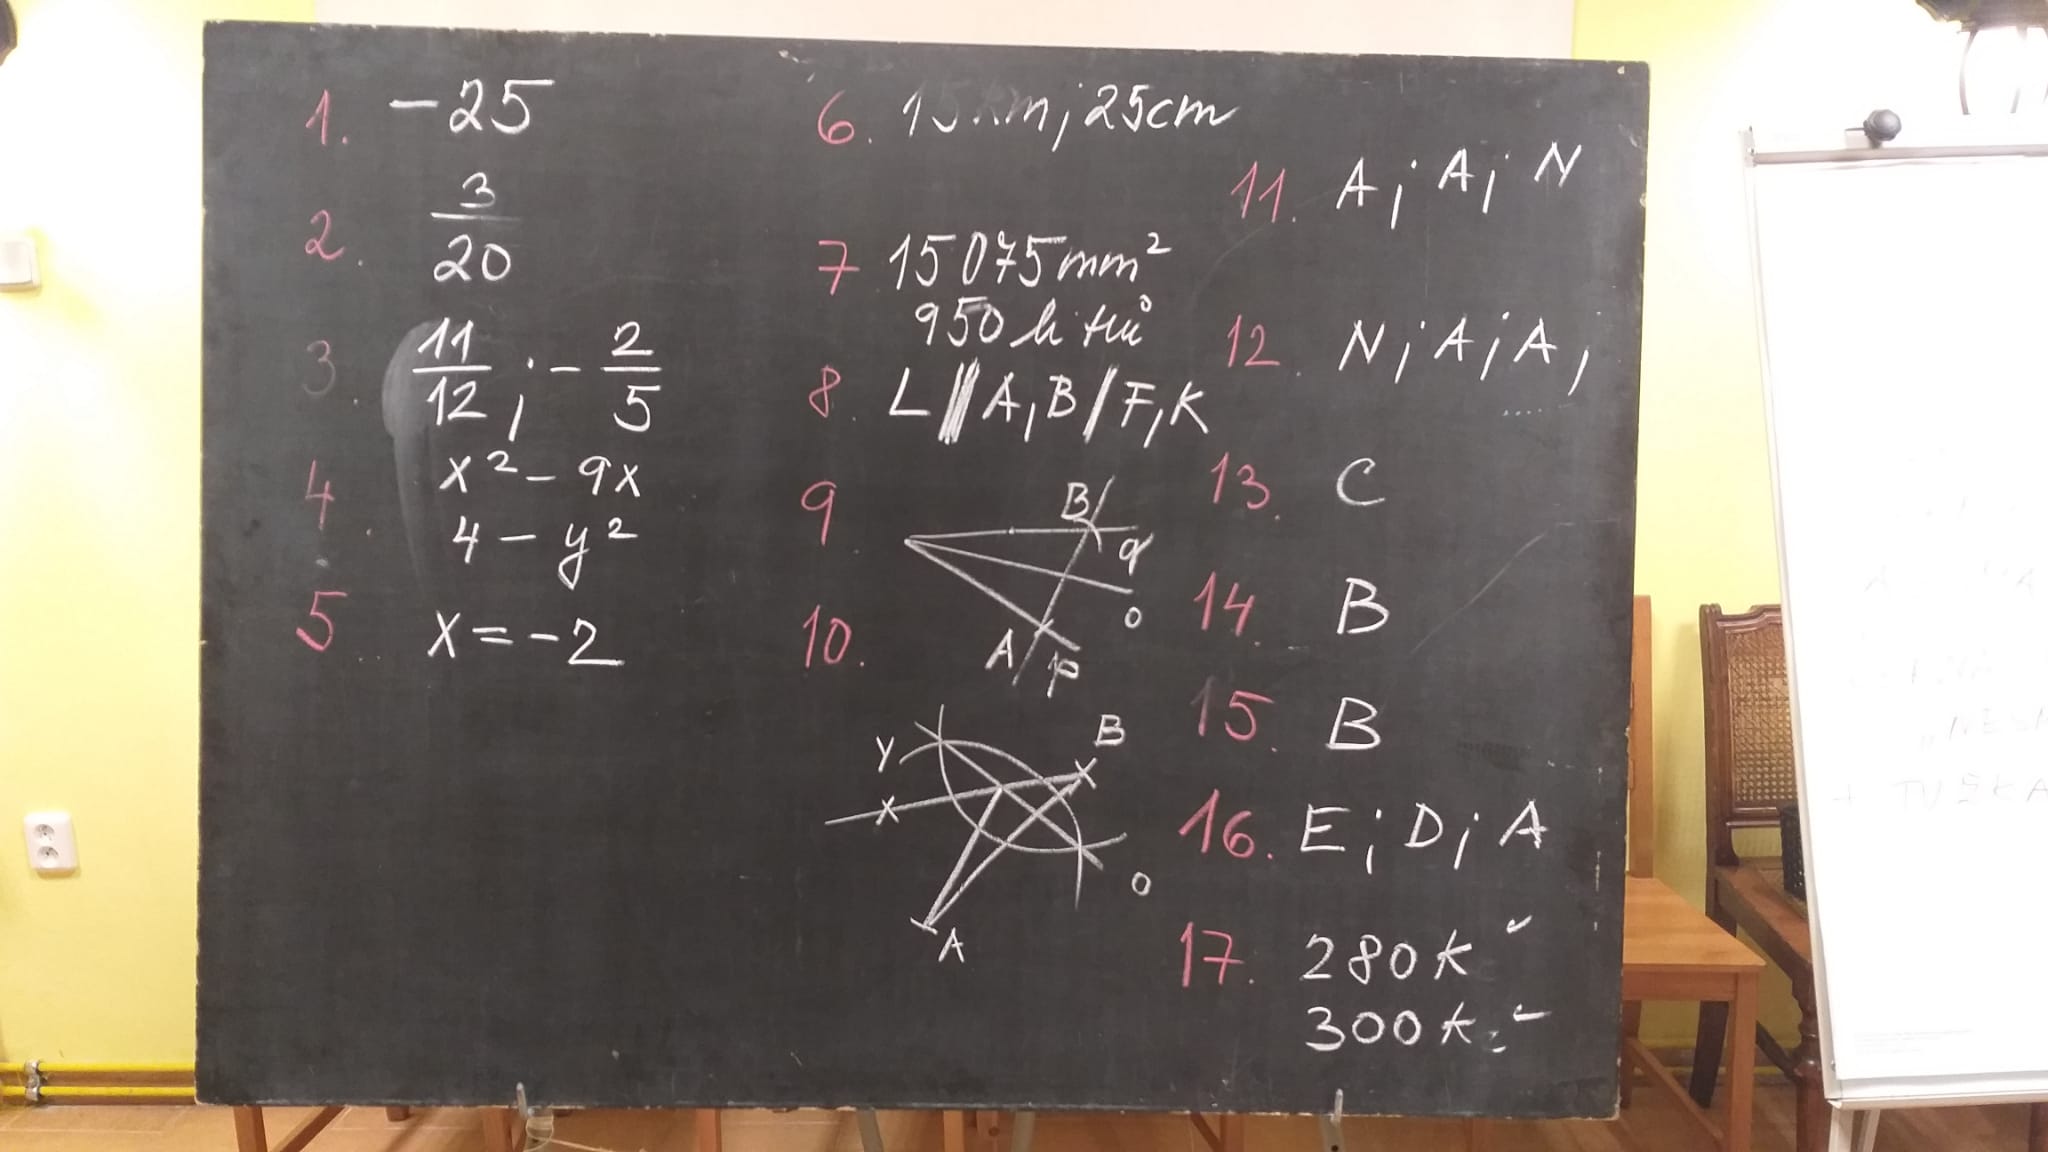 1. -25
2. 3/20
3. 11/12 ; - 2/5
4. x² - 9x
4 - y²
5 x = -2
6. 15 km ; 25 cm
7 15 075 mm²
950 litrů
8. L // A, B / F, K
9.
B
q
o
A
p
10.
Y
B
X
o
A
11. A ; A ; N
12. N ; A ; A ;
13. C
14. B
15. B
16. E ; D ; A
17. 280 K
300 K
TUŽKA